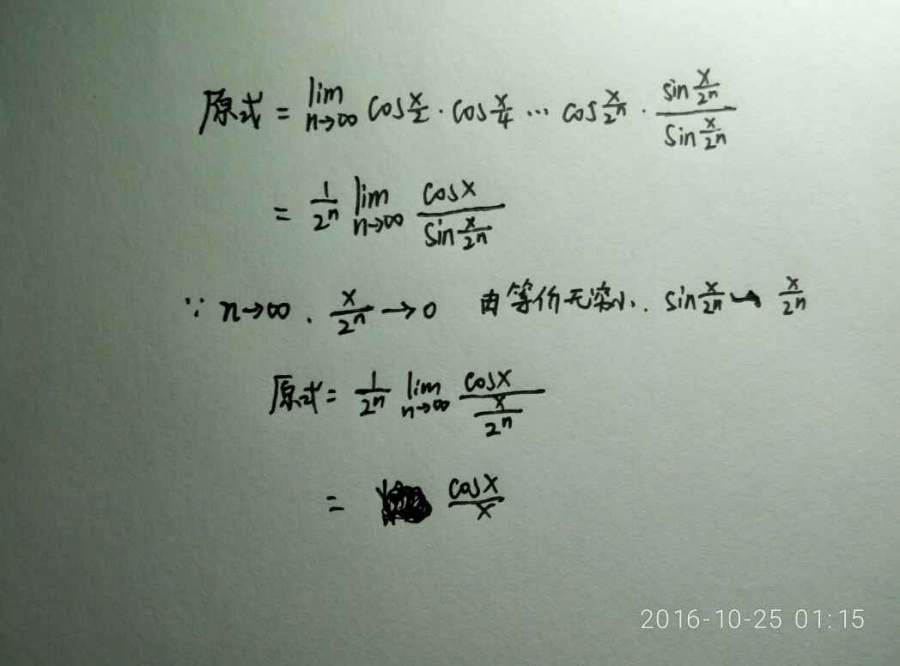 原式 = lim n→∞ cos x/2 · cos x/4 ··· cos x/2ⁿ · sin x/2ⁿ / sin x/2ⁿ
= 1/2ⁿ lim n→∞ cosx / sin x/2ⁿ
∵ n→∞ . x/2ⁿ →0 由等价无穷小. sin x/2ⁿ ~ x/2ⁿ
原式 = 1/2ⁿ lim n→∞ cosx / x/2ⁿ
= cosx / x
2016-10-25 01:15